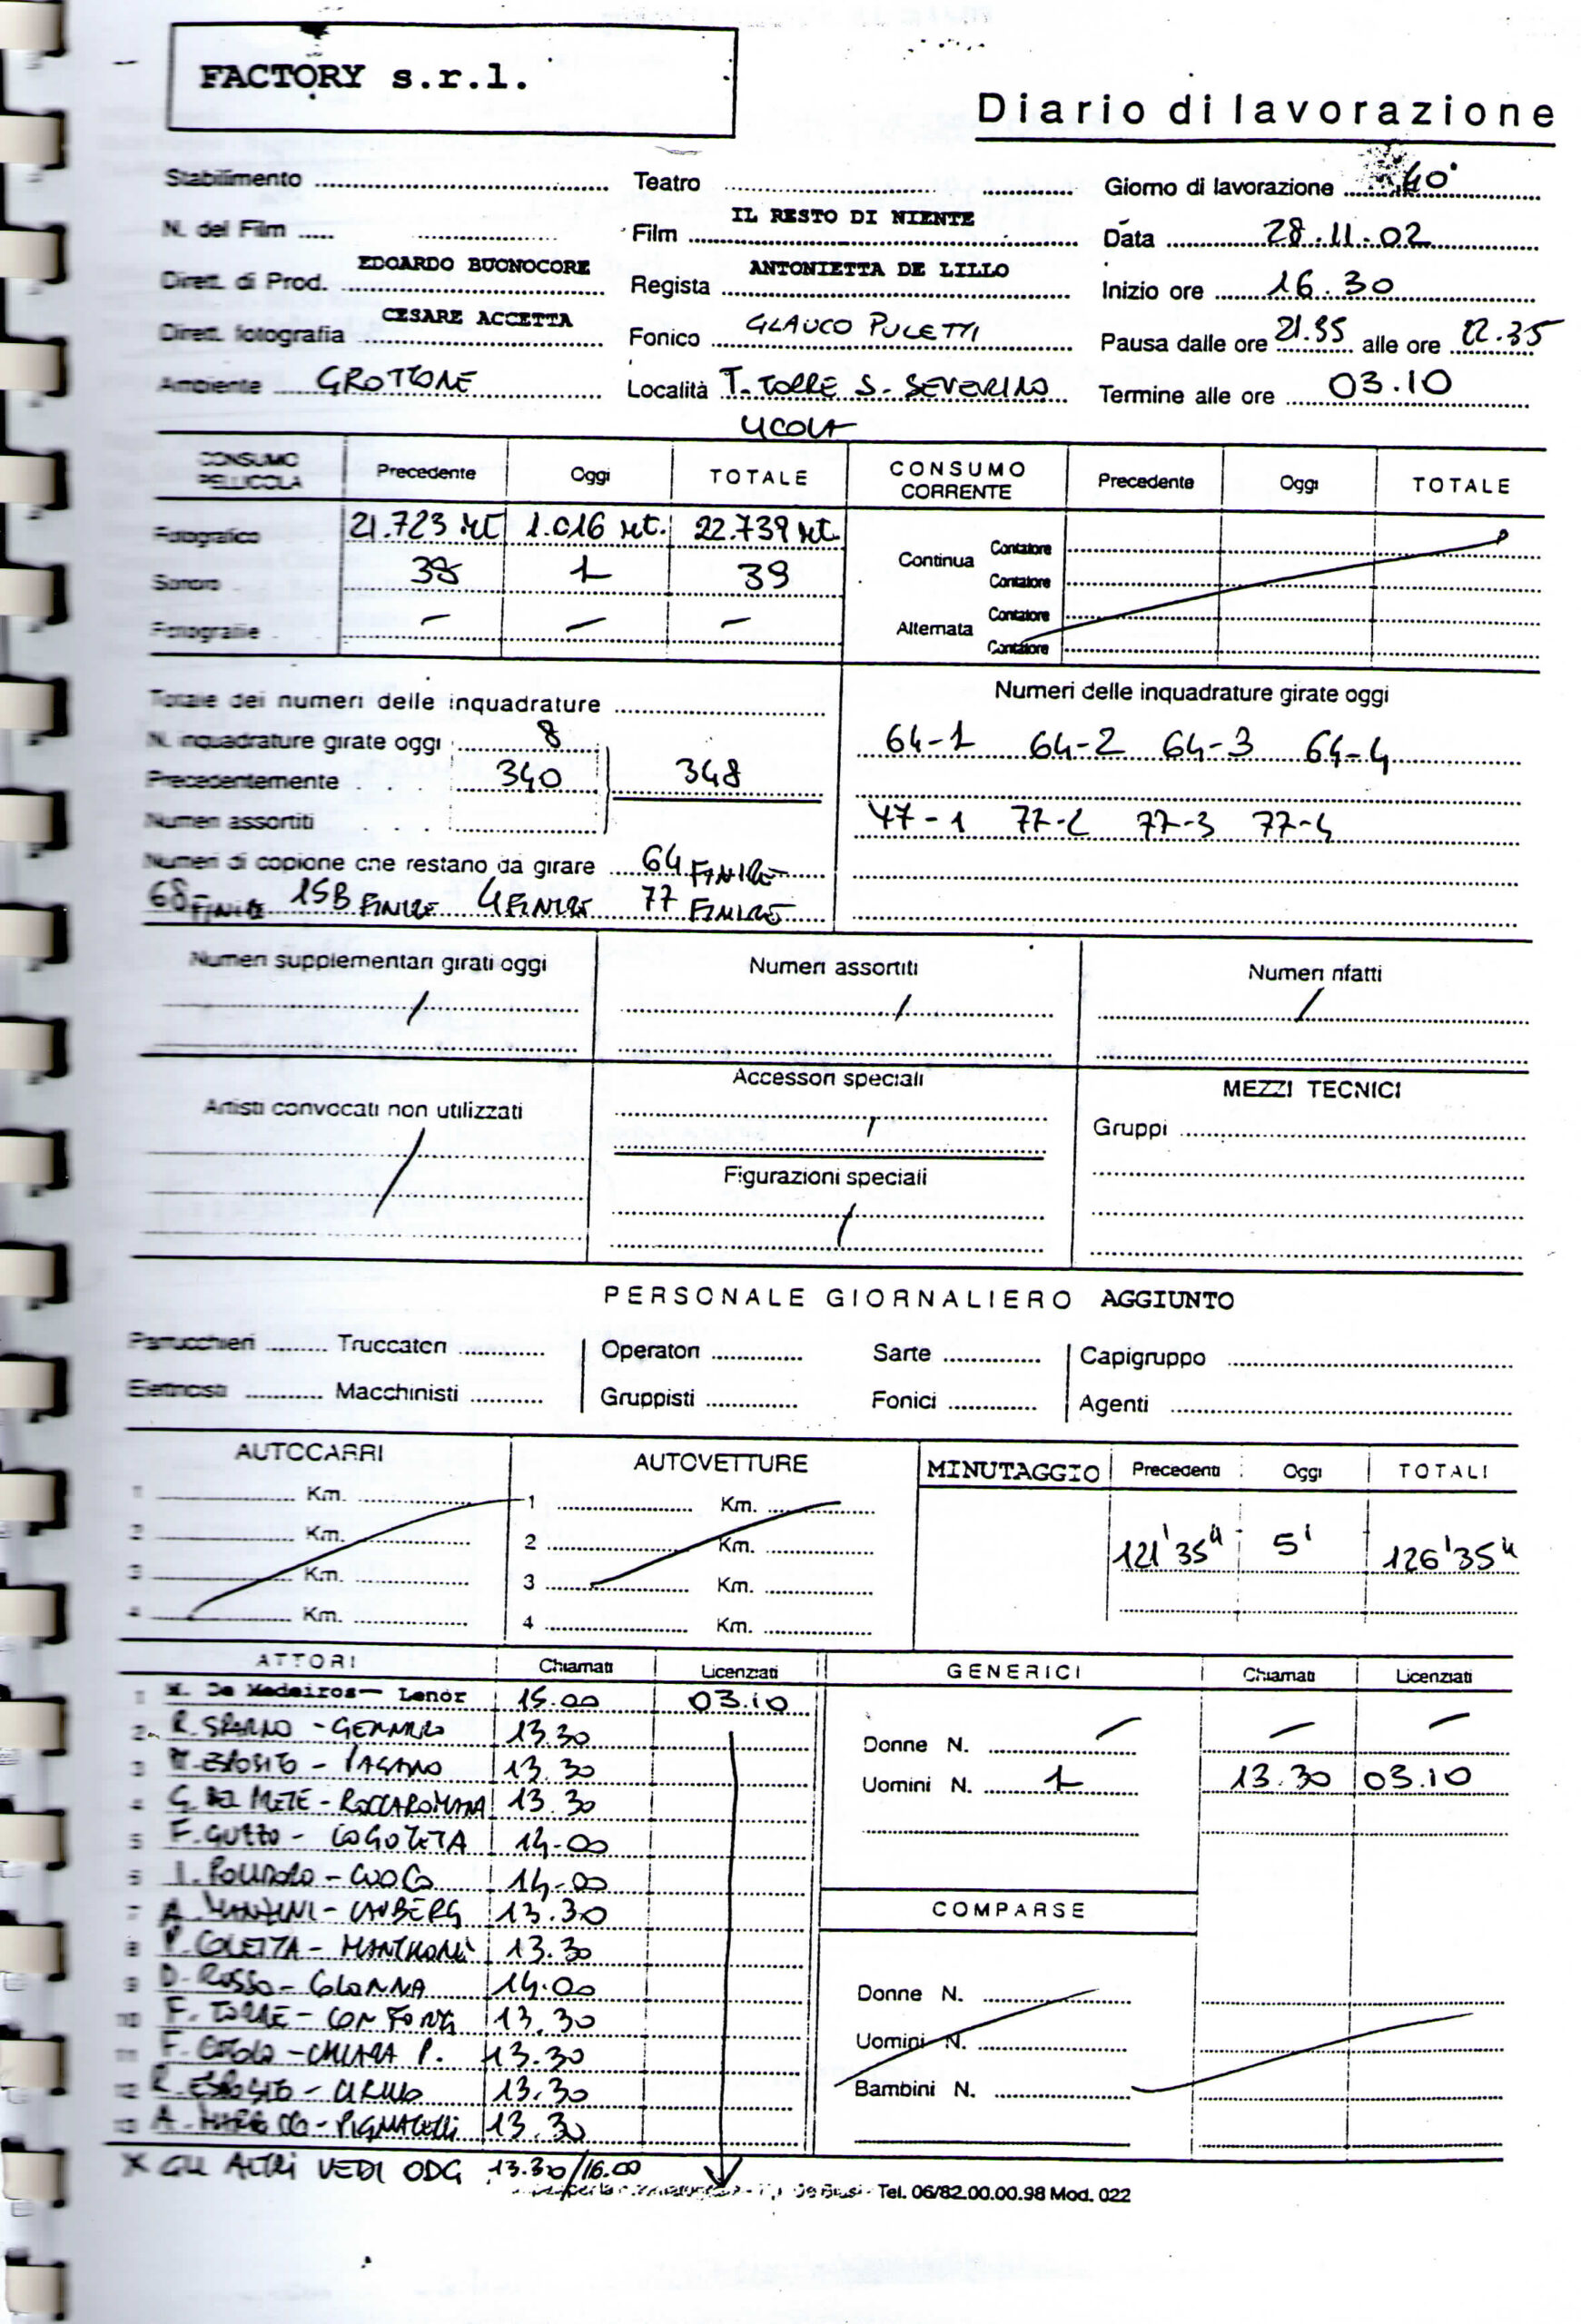 FACTORY s.r.l.
Diario di lavorazione
Stabilimento Teatro Giorno di lavorazione 40°
N. del Film Film IL RESTO DI NIENTE Data 28.11.02
Dirett. di Prod. EDOARDO BUONOCORE Regista ANTONIETTA DE LILLO Inizio ore 16.30
Dirett. fotografia CESARE ACCETTA Fonico GLAUCO PULETTI Pausa dalle ore 21.35 alle ore 22.35
Ambiente GROTTONE Località T. TORRE S. SEVERINO Termine alle ore 03.10
LICOLA
CONSUMO PELLICOLA Precedente Oggi TOTALE CONSUMO CORRENTE Precedente Oggi TOTALE
Fotografico 21.723 mt 1.016 mt. 22.739 mt.
Continua Contatore
Sonoro 38 1 39 Contatore
Alternata Contatore
Fotografie – – – Contatore
Totale dei numeri delle inquadrature Numeri delle inquadrature girate oggi
N. inquadrature girate oggi 8 64-1 64-2 64-3 64-4
Precedentemente 340 348
Numeri assortiti 77-1 77-2 77-3 77-4
Numeri di copione che restano da girare 64 FINIRE
68 FINIRE 15B FINIRE 4 FINIRE 77 FINIRE
Numeri supplementari girati oggi Numeri assortiti Numeri rifatti
/ / /
Artisti convocati non utilizzati Accessori speciali MEZZI TECNICI
Gruppi
Figurazioni speciali
PERSONALE GIORNALIERO AGGIUNTO
Parrucchieri Truccatori Operatori Sarte Capigruppo
Elettricisti Macchinisti Gruppisti Fonici Agenti
AUTOCARRI AUTOVETTURE MINUTAGGIO Precedenti Oggi TOTALI
1 Km. 1 Km.
2 Km. 2 Km. 121'35" 5' 126'35"
3 Km. 3 Km.
4 Km. 4 Km.
ATTORI Chiamati Licenziati GENERICI Chiamati Licenziati
1 M. De Medeiros— Lenor 15.00 03.10
2 R. SPARNO - GENNARO 13.30 Donne N. – – –
3 M. ESPOSITO - PAGANO 13.30 Uomini N. 1 13.30 03.10
4 G. DEL PRETE - ROCCAROMANA 13.30
5 F. GUZZO - LOGOTETA 14.00
6 I. POLIDORO - CUOCO 14.00
7 A. MANZINI - LAUBERG 13.30 COMPARSE
8 P. COLETTA - MANTHONÈ 13.30
9 D. ROSSO - COLONNA 14.00 Donne N.
10 F. TORRE - CONFORTI 13.30
11 F. - CHIARA P. 13.30 Uomini N.
12 R. ESPOSITO - CIRILLO 13.30 Bambini N.
13 A. - PIGNATELLI 13.30
X GLI ALTRI VEDI ODG 13.30/16.00
Tel. 06/82.00.00.98 Mod. 022